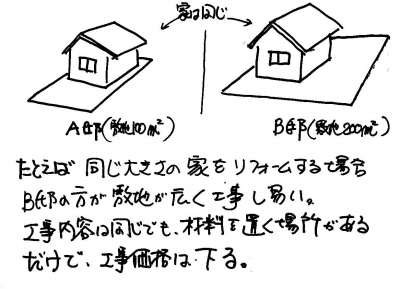 家は同じ
A邸(敷地100m²)
B邸(敷地200m²)
たとえば 同じ大きさの家をリフォームする場合
B邸の方が敷地が広く工事し易い。
工事内容は同じでも、材料を置く場所がある
だけで、工事価格は下る。